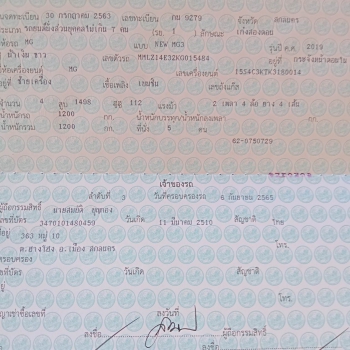 วันจดทะเบียน 30 กรกฎาคม 2563 เลขทะเบียน กม 9279 จังหวัด สกลนคร
ประเภท รถยนต์นั่งส่วนบุคคลไม่เกิน 7 คน (รย. 1 ) ลักษณะ เก๋งสองตอน
ยี่ห้อรถ MG แบบ NEW MG3 รุ่นปี ค.ศ. 2019
สี น้ำเงิน ขาว เลขตัวรถ MMLZ14E32KG015484 อยู่ที่
ยี่ห้อเครื่องยนต์ MG เลขเครื่องยนต์
อยู่ที่ เชื้อเพลิง เบนซิน เลขถังแก๊ส
จำนวน 4 สูบ 1498 ซีซี 112 แรงม้า 2 เพลา 4 ล้อ ยาง 4 เส้น
น้ำหนักรถ 1200 กก. น้ำหนักบรรทุก/น้ำหนักลงเพลา กก.
น้ำหนักรวม 1200 กก. ที่นั่ง 5 คน
62-0750729
เจ้าของรถ
ลำดับที่ 3 วันที่ครอบครองรถ 6 กันยายน 2565
ผู้ถือกรรมสิทธิ์
เลขที่บัตร 3470101480459 วันเกิด 11 มีนาคม 2510 สัญชาติ ไทย
ที่อยู่ 363 หมู่ 10
ต.ฮางโฮง อ.เมือง สกลนคร โทร.
ผู้ครอบครอง
เลขที่บัตร วันเกิด สัญชาติ
ที่อยู่ โทร.
สัญญาเช่าซื้อเลขที่ ลงวันที่
ลงชื่อ ผู้ถือกรรมสิทธิ์
ลงชื่อ